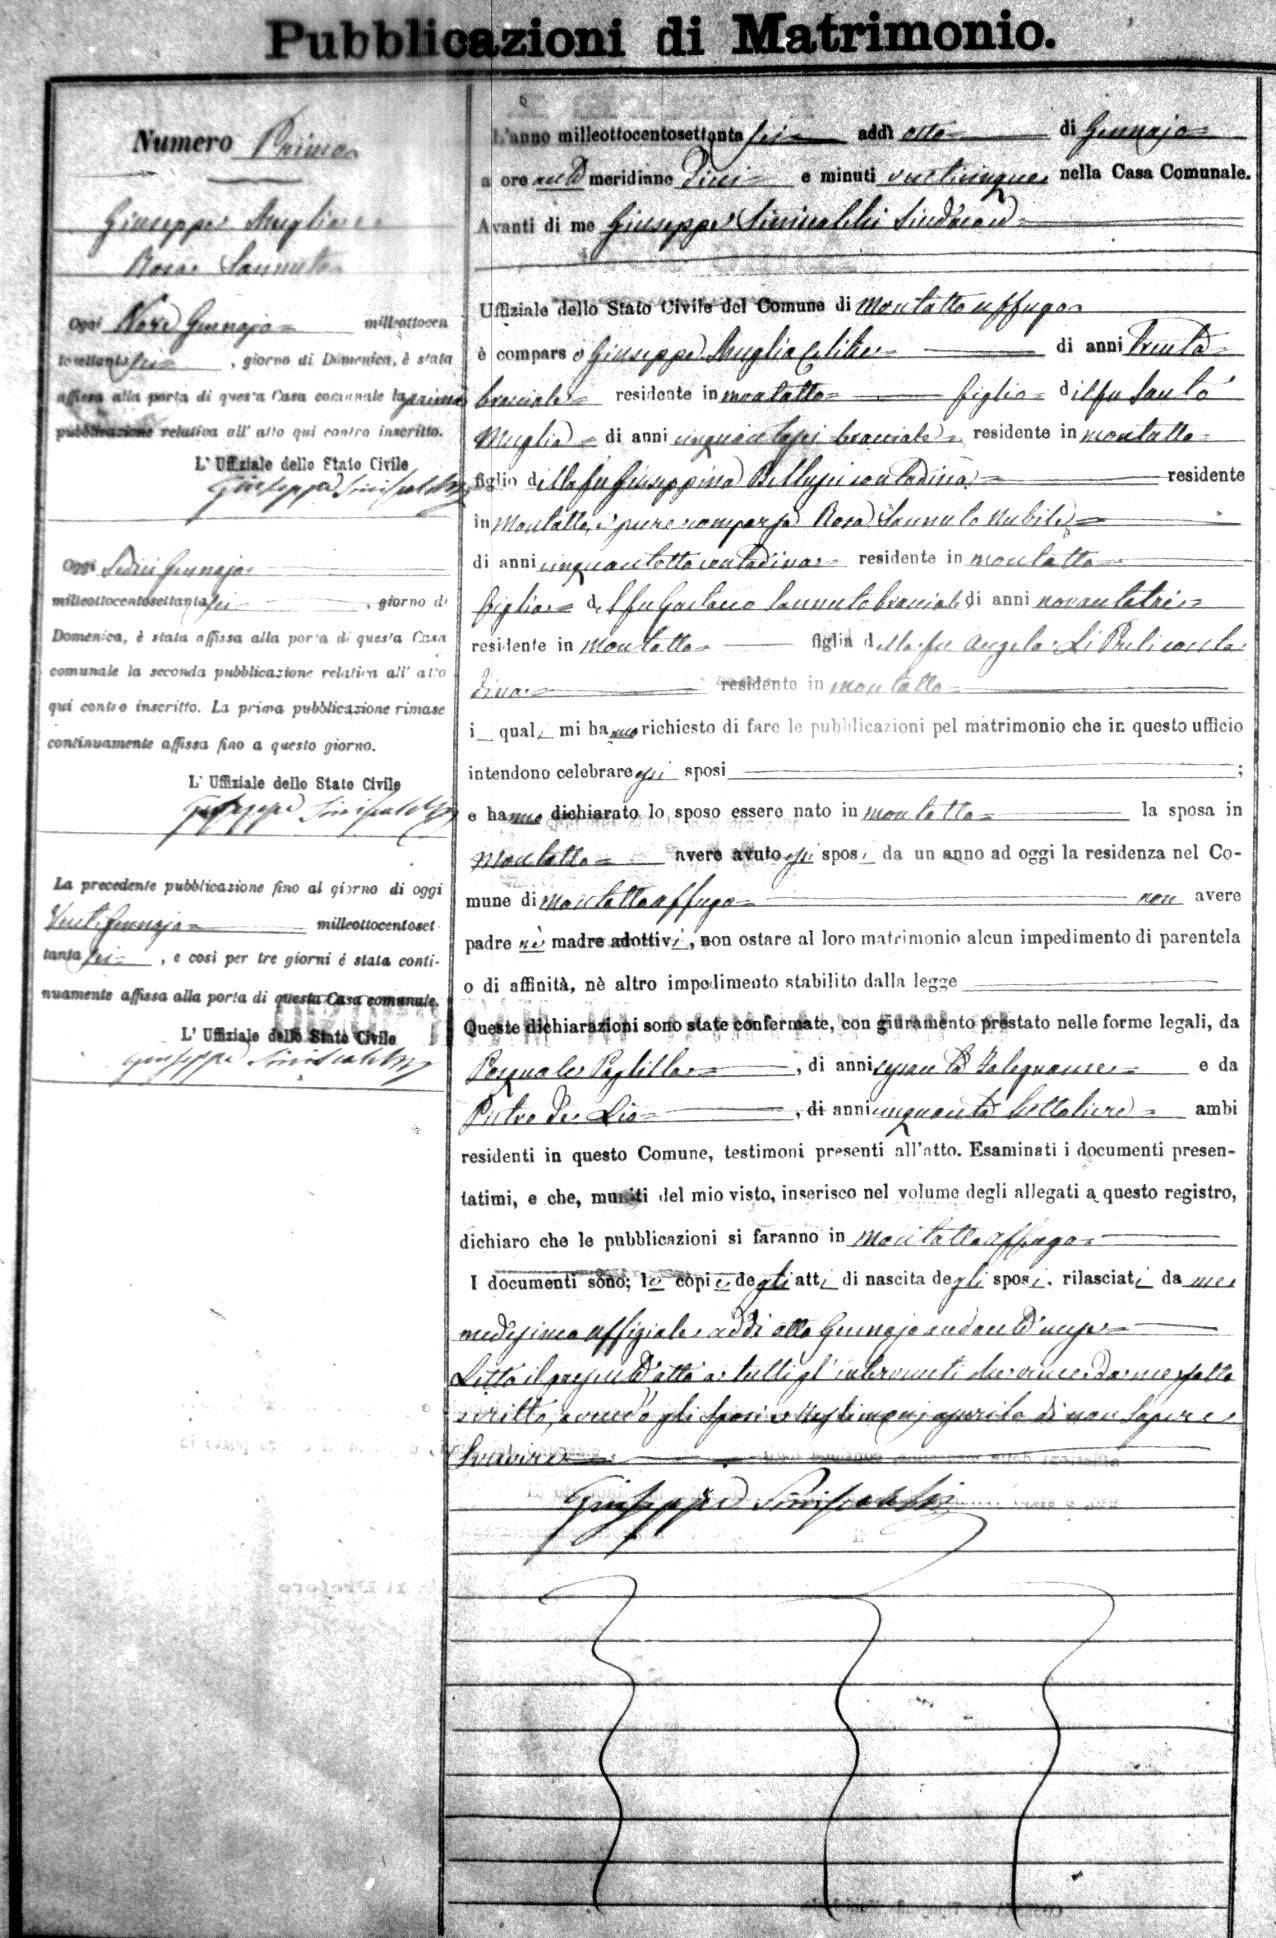 Pubblicazioni di Matrimonio.
Numero Primo
Giuseppe Muglia e
Rosa Sannuto
Oggi Nove Gennajo milleottocen
tosettantasei, giorno di Domenica, è stata
affissa alla porta di questa Casa comunale la prima
pubblicazione relativa all' atto qui contro inscritto.
L' Uffiziale dello Stato Civile
Giuseppe Siniscalchi
Oggi Sedici Gennajo
milleottocentosettantasei, giorno di
Domenica, è stata affissa alla porta di questa Casa
comunale la seconda pubblicazione relativa all' atto
qui contro inscritto. La prima pubblicazione rimase
continuamente affissa fino a questo giorno.
L' Uffiziale dello Stato Civile
Giuseppe Siniscalchi
La precedente pubblicazione fino al giorno di oggi
Venti Gennajo milleottocentoset
tanta sei, e così per tre giorni é stata conti-
nuamente affissa alla porta di questa Casa comunale.
L' Uffiziale dello Stato Civile
Giuseppe Siniscalchi
L'anno milleottocentosettanta sei addì otto di Gennajo
a ore anti meridiane dieci e minuti venticinque nella Casa Comunale.
Avanti di me Giuseppe Siniscalchi Sindaco
Uffiziale dello Stato Civile del Comune di Montalto uffugo
è comparso Giuseppe Muglia Celibe di anni trenta
bracciale residente in montalto figlio del fu Santo
Muglia di anni cinquantasei bracciale residente in montalto
figlio della fu Giuseppina contadina residente
in Montalto, è pure comparsa Rosa Sannuto Nubile
di anni cinquantotto contadina residente in montalto
figlia del fu Gaetano Sannuto bracciale di anni novantatrè
residente in montalto figlia della fu Angela Li Preti conta
dina residente in montalto
i quali mi hanno richiesto di fare le pubblicazioni pel matrimonio che in questo ufficio
intendono celebrare essi sposi ;
e hanno dichiarato lo sposo essere nato in montalto la sposa in
Montalto avere avuto essi sposi da un anno ad oggi la residenza nel Co-
mune di Montalto uffugo non avere
padre nè madre adottivi, non ostare al loro matrimonio alcun impedimento di parentela
o di affinità, nè altro impedimento stabilito dalla legge
Queste dichiarazioni sono state confermate, con giuramento prestato nelle forme legali, da
Pasquale, di anni sessanta falegname e da
Pietro de Lio, di anni cinquanta bottoliere ambi
residenti in questo Comune, testimoni presenti all'atto. Esaminati i documenti presen-
tatimi, e che, muniti del mio visto, inserisco nel volume degli allegati a questo registro,
dichiaro che le pubblicazioni si faranno in Montalto uffugo
I documenti sono; le copie degli atti di nascita degli sposi, rilasciati da me
medesimo uffiziale addi otto Gennajo andante mese
Letto il presente atto a tutti gl'intervenuti da me
scritto, avendo gli sposi e testimonj asserito di non sapere
scrivere
Giuseppe Siniscalchi